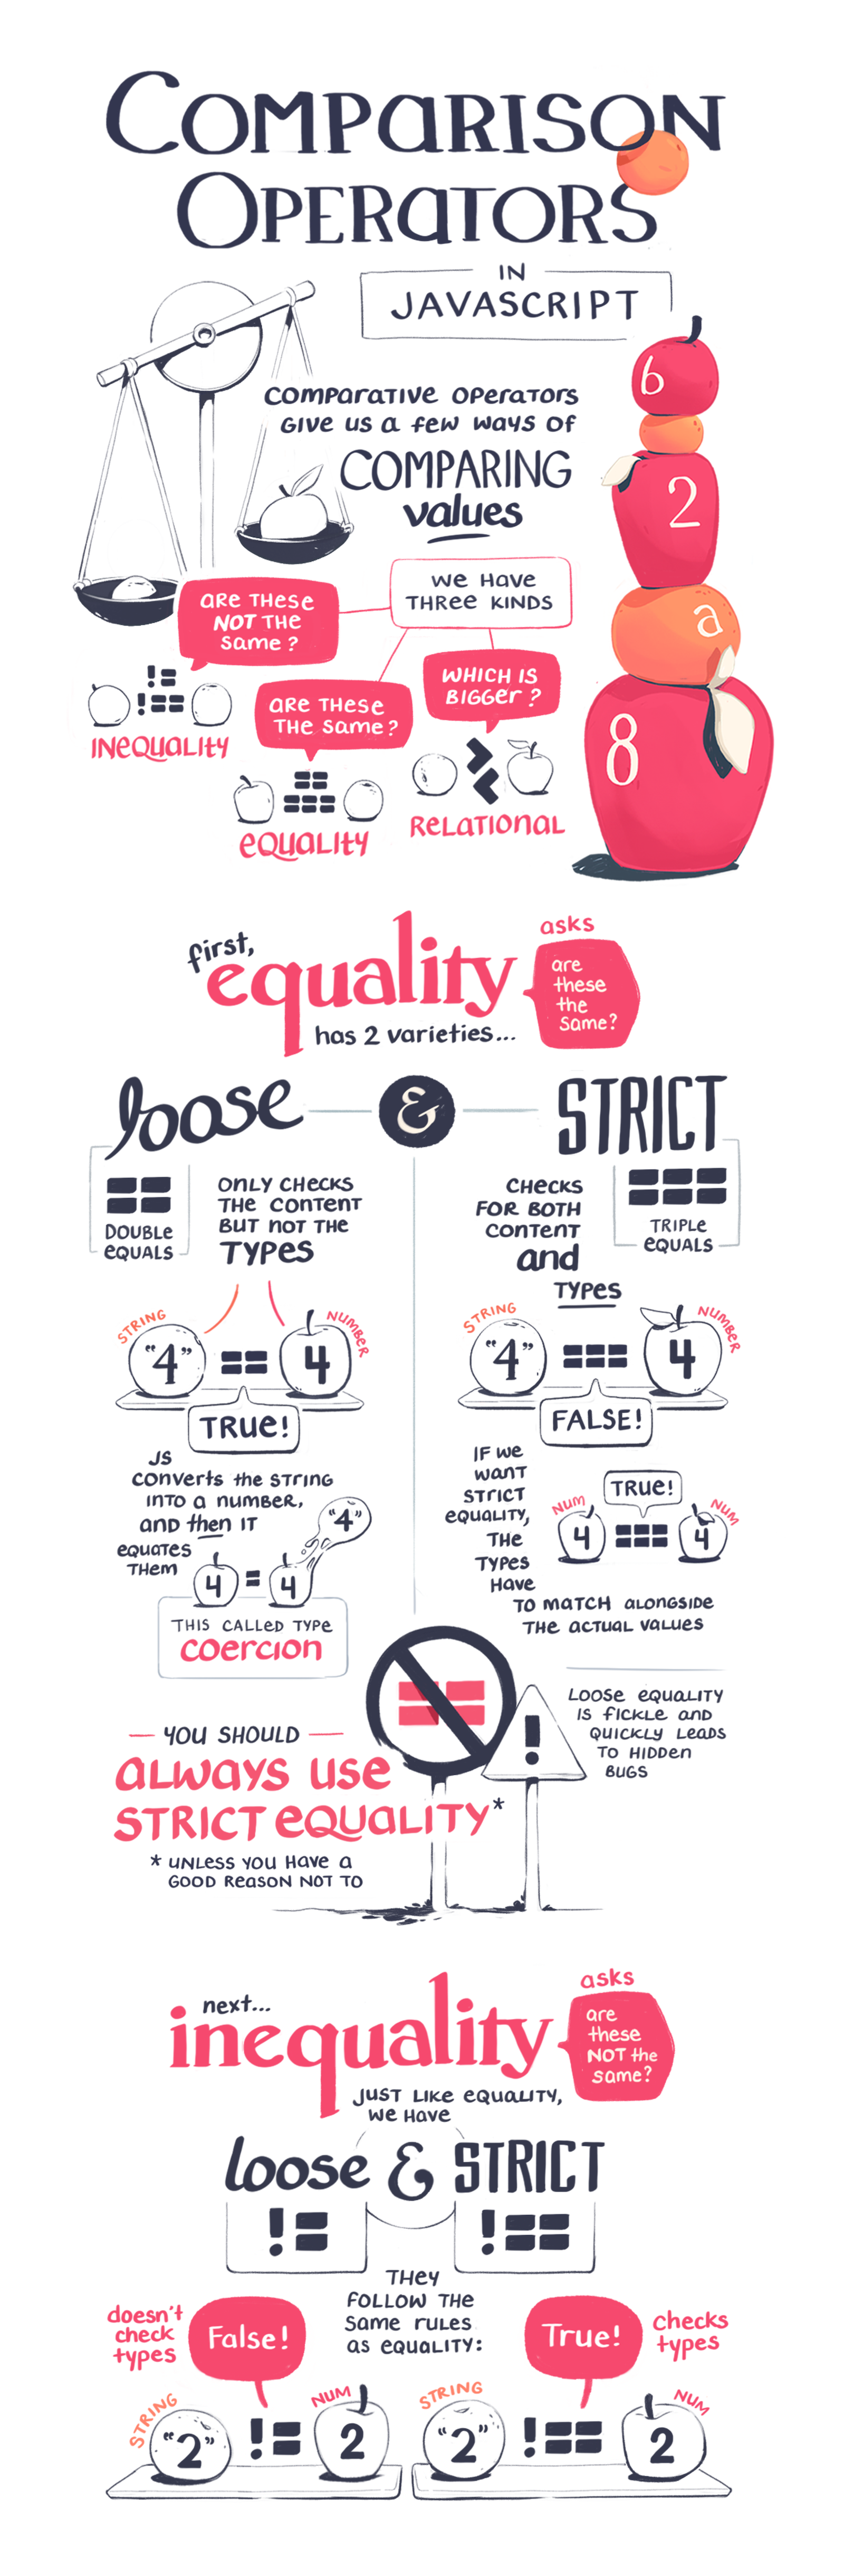 COMPARISON
OPERATORS
IN
JAVASCRIPT
COMPARATIVE OPERATORS
GIVE US A FEW WAYS OF
COMPARING
values
6
2
a
8
WE HAVE
THREE KINDS
ARE THESE
NOT THE
SAME?
!=
!==
INEQUALITY
ARE THESE
THE SAME?
==
===
EQUALITY
WHICH IS
BIGGER?
>
<
RELATIONAL
first,
equality
has 2 varieties...
asks
are
these
the
same?
loose
&
STRICT
==
DOUBLE
EQUALS
ONLY CHECKS
THE CONTENT
BUT NOT THE
TYPES
STRING
"4"
==
NUMBER
4
TRUE!
JS
CONVERTS THE STRING
INTO A NUMBER,
AND then IT
EQUATES
THEM
"4"
4 = 4
THIS CALLED TYPE
COERCION
CHECKS
FOR BOTH
CONTENT
and
TYPES
===
TRIPLE
EQUALS
STRING
"4"
===
NUMBER
4
FALSE!
IF WE
WANT
STRICT
EQUALITY,
THE
TYPES
HAVE
TO MATCH ALONGSIDE
THE ACTUAL VALUES
TRUE!
NUM
4
===
NUM
4
==
!
YOU SHOULD
ALWAYS USE
STRICT EQUALITY*
* UNLESS YOU HAVE A
GOOD REASON NOT TO
LOOSE EQUALITY
IS FICKLE AND
QUICKLY LEADS
TO HIDDEN
BUGS
next...
inequality
asks
are
these
NOT the
same?
JUST LIKE EQUALITY,
WE HAVE
loose & STRICT
!=
!==
THEY
FOLLOW THE
SAME RULES
AS EQUALITY:
doesn't
check
types
False!
STRING
"2"
!=
NUM
2
True!
checks
types
STRING
"2"
!==
NUM
2